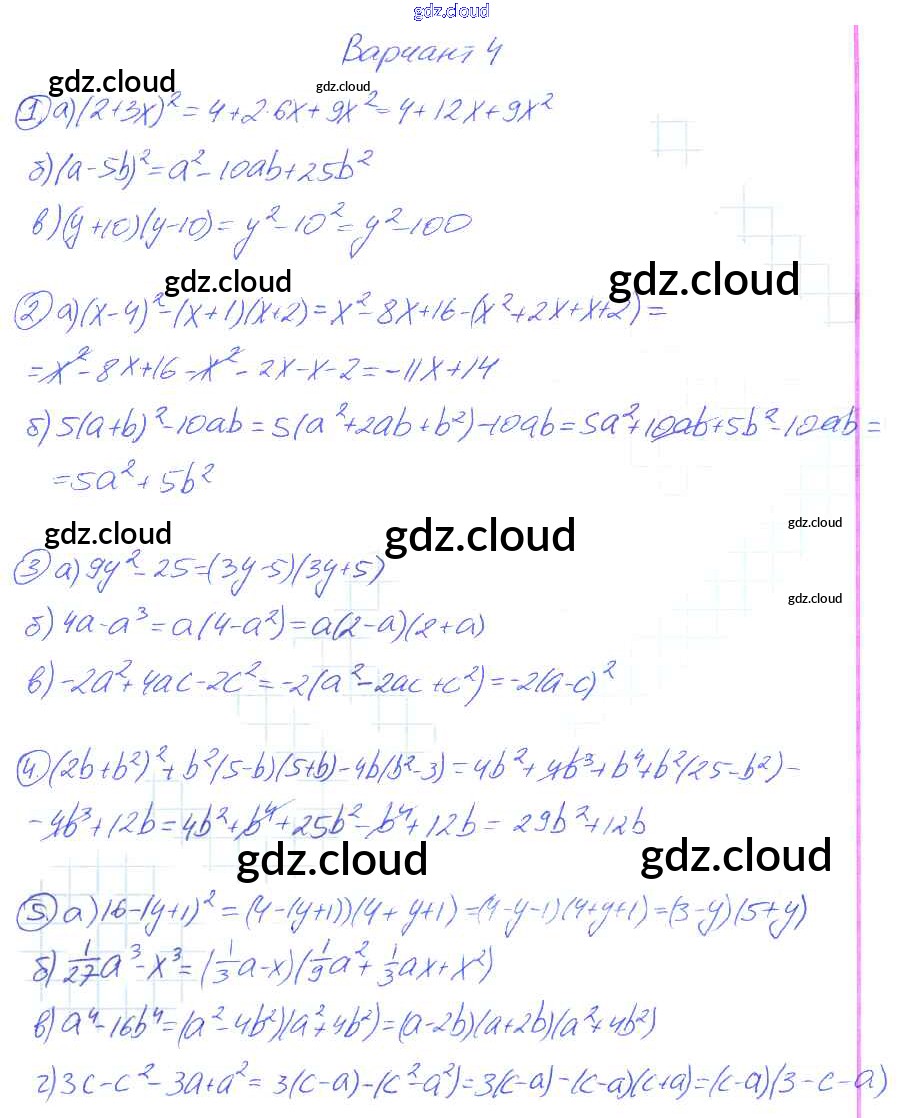 gdz.cloud
Вариант 4
gdz.cloud
gdz.cloud
① а) (2+3x)² = 4+2·6x+9x² = 4+12x+9x²
б) (a-5b)² = a²-10ab+25b²
в) (y+10)(y-10) = y²-10² = y²-100
gdz.cloud
gdz.cloud
② а) (x-4)²-(x+1)(x+2) = x²-8x+16-(x²+2x+x+2) =
= x²-8x+16-x²-2x-x-2 = -11x+14
б) 5(a+b)²-10ab = 5(a²+2ab+b²)-10ab = 5a²+10ab+5b²-10ab =
= 5a²+5b²
gdz.cloud
gdz.cloud
gdz.cloud
③ а) 9y²-25 = (3y-5)(3y+5)
gdz.cloud
б) 4a-a³ = a(4-a²) = a(2-a)(2+a)
в) -2a²+4ac-2c² = -2(a²-2ac+c²) = -2(a-c)²
④ (2b+b²)²+b²(5-b)(5+b)-4b(b²-3) = 4b²+4b³+b⁴+b²(25-b²)-
-4b³+12b = 4b²+b⁴+25b²-b⁴+12b = 29b²+12b
gdz.cloud
gdz.cloud
⑤ а) 16-(y+1)² = (4-(y+1))(4+y+1) = (4-y-1)(4+y+1) = (3-y)(5+y)
б) 1/27 a³-x³ = (1/3 a-x)(1/9 a²+1/3 ax+x²)
в) a⁴-16b⁴ = (a²-4b²)(a²+4b²) = (a-2b)(a+2b)(a²+4b²)
г) 3c-c²-3a+a² = 3(c-a)-(c²-a²) = 3(c-a)-(c-a)(c+a) = (c-a)(3-c-a)